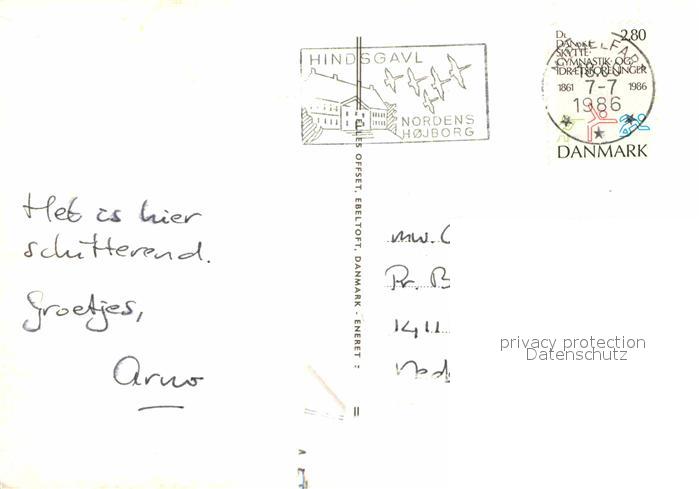 HINDSGAVL
NORDENS
HØJBORG
2.80
DANSKE
SKYTTE-
GYMNASTIK- OG
IDRÆTSFORENINGER
1861 1986
7-7
1986
DANMARK
ELLES OFFSET, EBELTOFT, DANMARK - ENERET
Het is hier
schitterend.
Groetjes,
Arno
mw. C
Pr. B
1411
Ned
privacy protection
Datenschutz